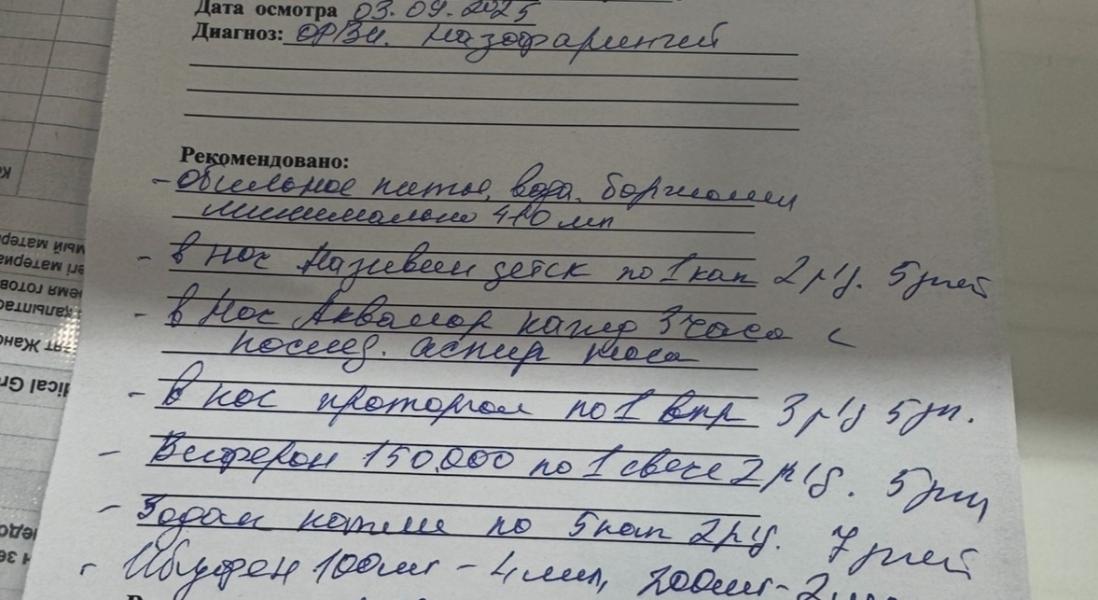 Дата осмотра 03.09.2025
Диагноз: ОРВИ. Назофарингит
Рекомендовано:
- Обильное питье, вода. боржоми
минимально 410 мл
- в нос Називин детск по 1 кап 2 р/д. 5 дней
- в нос Аквамор кажд 3 часа с
послед. аспир носа
- в нос проторгол по 1 впр 3 р/д 5 дн.
- Виферон 150.000 по 1 свече 2 р/д. 5 дн
- Зодак капли по 5 кап 2 р/д. 7 дней
- Ибуфен 100мг - 4 мл, 200мг -